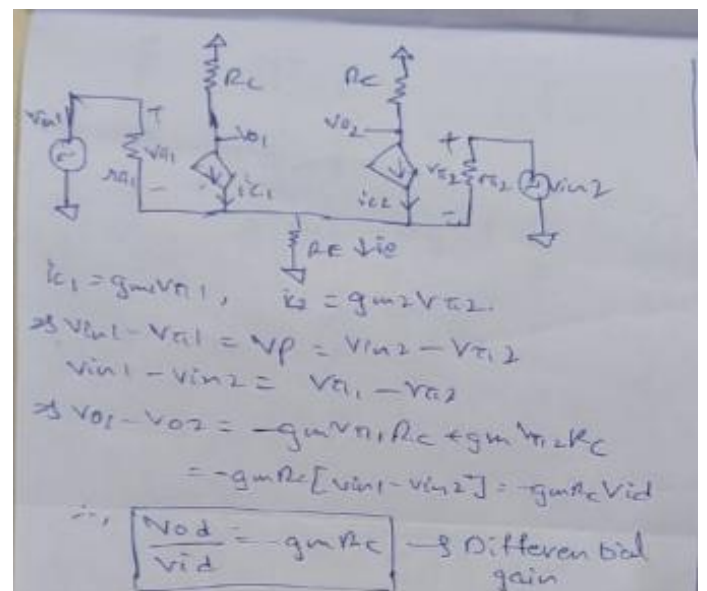 Rc
Rc
Vin1
+
Vπ1
rπ1
-
Vo1
ic1
Vo2
ic2
+
Vπ2
rπ2
-
Vin2
RE ↓ie
ic1 = gm1Vπ1, ic2 = gm2Vπ2.
⇒ Vin1 - Vπ1 = Vp = Vin2 - Vπ2
Vin1 - Vin2 = Vπ1 - Vπ2
⇒ Vo1 - Vo2 = -gmVπ1Rc + gmVπ2Rc
= -gmRc[Vin1 - Vin2] = -gmRcVid
∴, Vod/Vid = -gmRc → Differential
gain